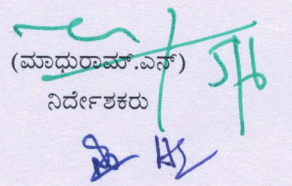 (ಮಾಧುರಾಮ್.ಎನ್)
ನಿರ್ದೇಶಕರು